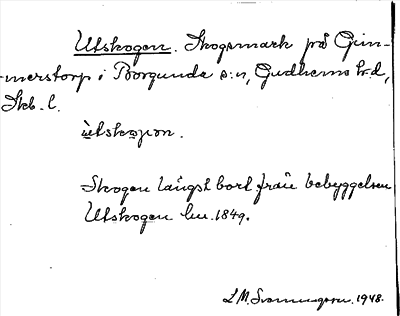 Utskogen. Skogsmark på Gun-
merstorp i Borgunda s:n, Gudhems h:d,
Skb. l.
ùtskogon.
Skogen längst bort från bebyggelsen
Utskogen lm. 1849.
1948.